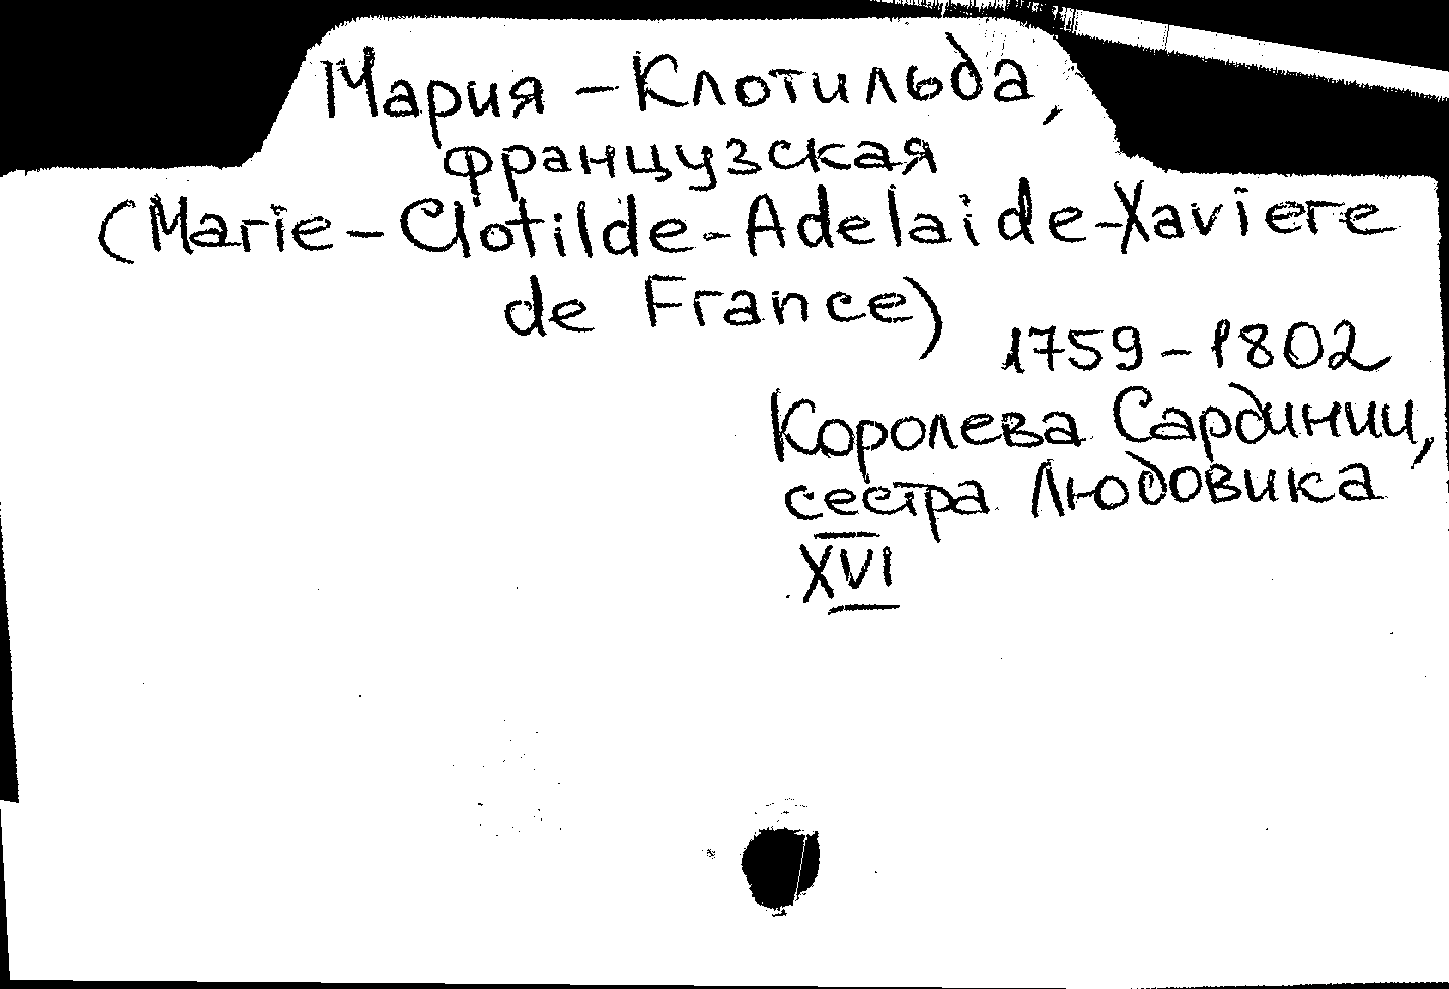 Мария - Клотильда,
французская
(Marie-Clotilde-Adelaide-Xaviere
de France)
1759-1802
Королева Сардинии,
сестра Людовика
XVI